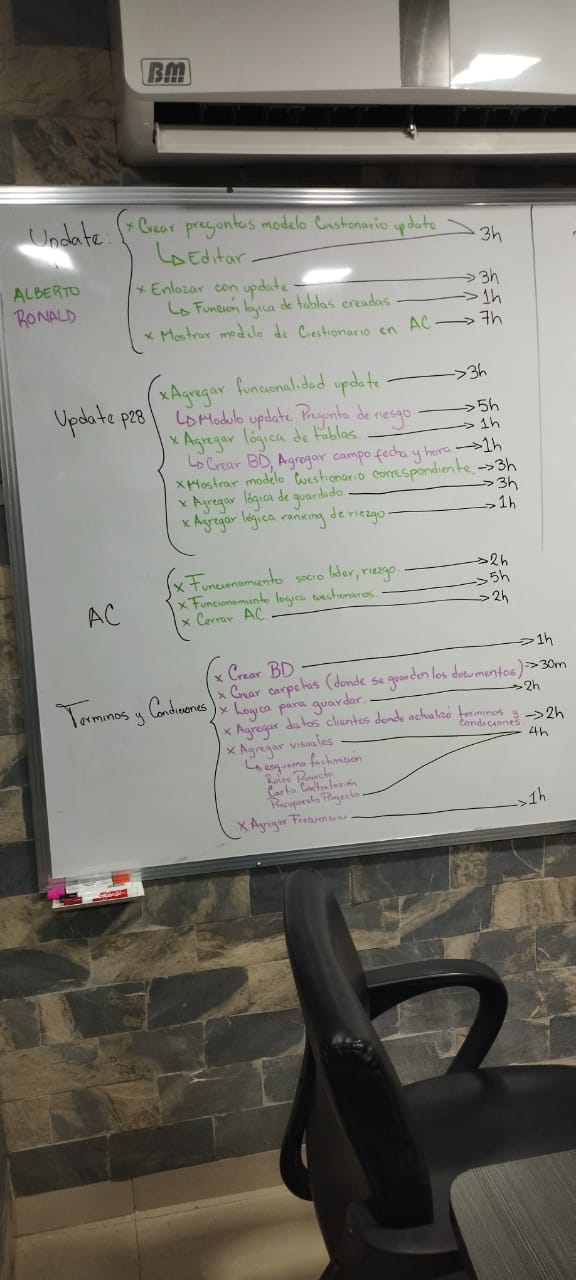 BM
Update:
x Crear preguntas modelo Cuestionario update → 3h
↳ Editar
ALBERTO
RONALD
x Enlazar con update → 3h
↳ Función lógica de tablas creadas → 1h
x Mostrar modelo de Cuestionario en AC → 7h
Update p28
x Agregar funcionalidad update → 3h
↳ Modulo update Pregunta de riesgo → 5h
x Agregar lógica de tablas. → 1h
↳ Crear BD, Agregar campo fecha y hora → 1h
x Mostrar modelo Cuestionario correspondiente, → 3h
x Agregar lógica de guardado → 3h
x Agregar lógica ranking de riezgo → 1h
AC
x Funcionamiento socio lider, riezgo. → 2h
x Funcionamiento logica cuestionarios. → 5h
x Cerrar AC → 2h
Terminos y Condiciones
x Crear BD → 1h
x Crear carpetas (donde se guarden los documentos) → 30m
x Logica para guardar. → 2h
x Agregar datos clientes donde actualizó terminos y condiciones → 2h
x Agregar visuales → 4h
↳ esquema facturación
Roles Proyecto
Carta Contratación
Presupuesto Proyecto
x Agregar Frecuencia → 1h